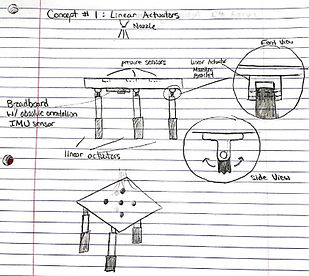 Concept # 1 : Linear Actuators
Nozzle
pressure sensors
Linear Actuator
Mounting
Bracket
Front View
Breadboard
w/ absolute orientation
IMU sensor
linear actuators
Side View